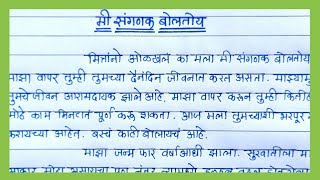 मी संगणक बोलतोय
मित्रांनो ओळखलं का मला मी संगणक बोलतोय
माझा वापर तुम्ही तुमच्या दैनंदिन जीवनात करत असता. माझ्यामु
तुमचे जीवन आरामदायक झाले आहे. माझा वापर करून तुम्ही कितीह
मोठे काम मिनटात पूर्ण करू शकता. आज मला तुमच्याशी भरपूर
करायच्या आहेत. बरचं काही बोलायचं आहे.
माझा जन्म फार वर्षाआधी झाला. सुरुवातीला मा